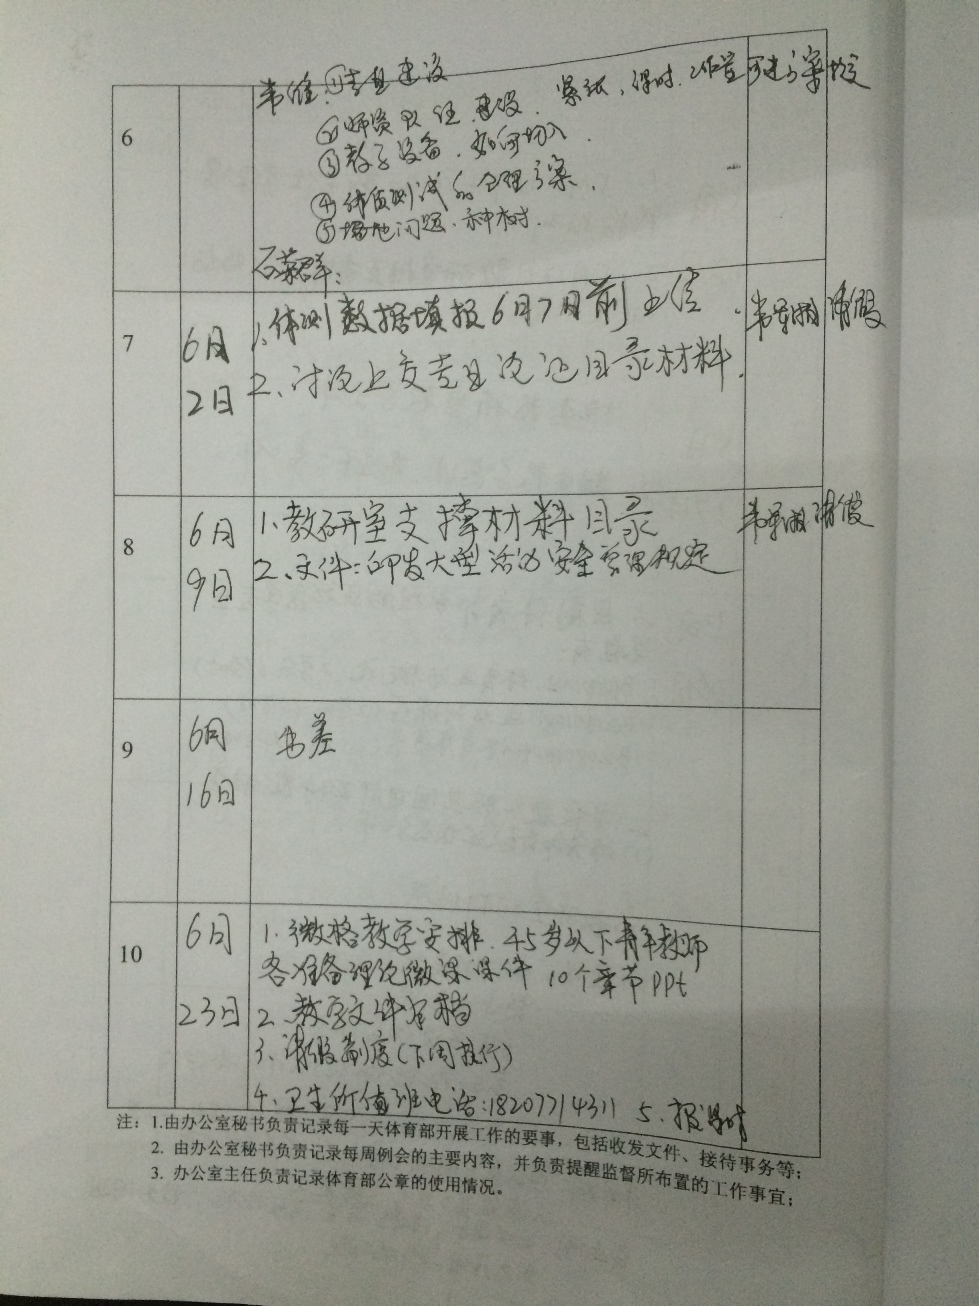 6
①专业建设
②师资队伍建设.
③教学设备.如何切入.
④体质测试的合理方案.
⑤场地问题.种树.
石荣群:
7
6月
2日
1.体测数据填报6月7日前上传.
请假
2、讨论上交专业论证目录材料.
8
6月
9日
1.教研室支撑材料目录
请假
2、文件:印发大型活动安全管理规定
9
6月
16日
出差
10
6月
23日
1.微格教学安排.45岁以下青年教师
各准备理论微课课件 10个章节ppt
2、教学文件归档
3、请假制度(下周执行)
4、卫生所值班电话:18207714311 5、报课时
注:1.由办公室秘书负责记录每一天体育部开展工作的要事,包括收发文件、接待事务等;
2. 由办公室秘书负责记录每周例会的主要内容,并负责提醒监督所布置的工作事宜;
3. 办公室主任负责记录体育部公章的使用情况。